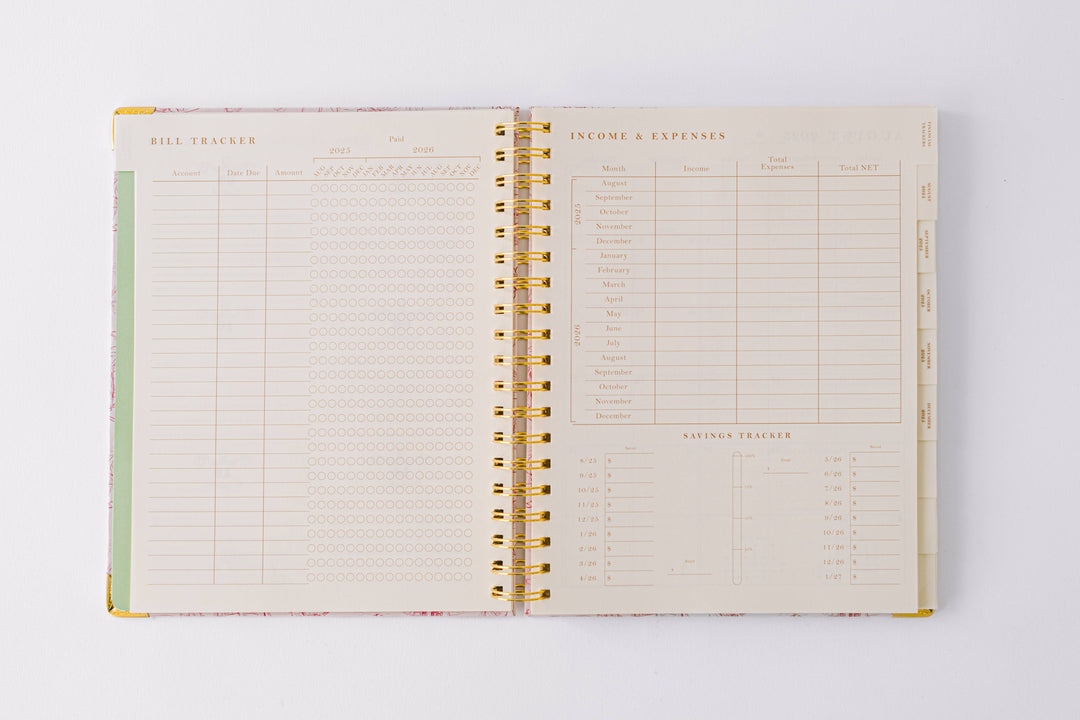 BILL TRACKER
Paid
2025 2026
AUG SEP OCT NOV DEC JAN FEB MAR APR MAY JUN JUL AUG SEP OCT NOV DEC
Account Date Due Amount
INCOME & EXPENSES
Month Income Total Expenses Total NET
2025
August
September
October
November
December
2026
January
February
March
April
May
June
July
August
September
October
November
December
SAVINGS TRACKER
Saved
8/25 $
9/25 $
10/25 $
11/25 $
12/25 $
1/26 $
2/26 $
3/26 $
4/26 $
$
$
Saved
5/26 $
6/26 $
7/26 $
8/26 $
9/26 $
10/26 $
11/26 $
12/26 $
1/27 $
FINANCIAL TRACKERS
AUGUST 2025
SEPTEMBER 2025
OCTOBER 2025
NOVEMBER 2025
DECEMBER 2025